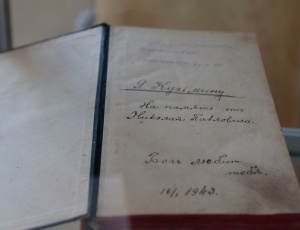 Я Кузьмину
На память от
Николая Павловича.
Богъ любит
тебя.
1943.